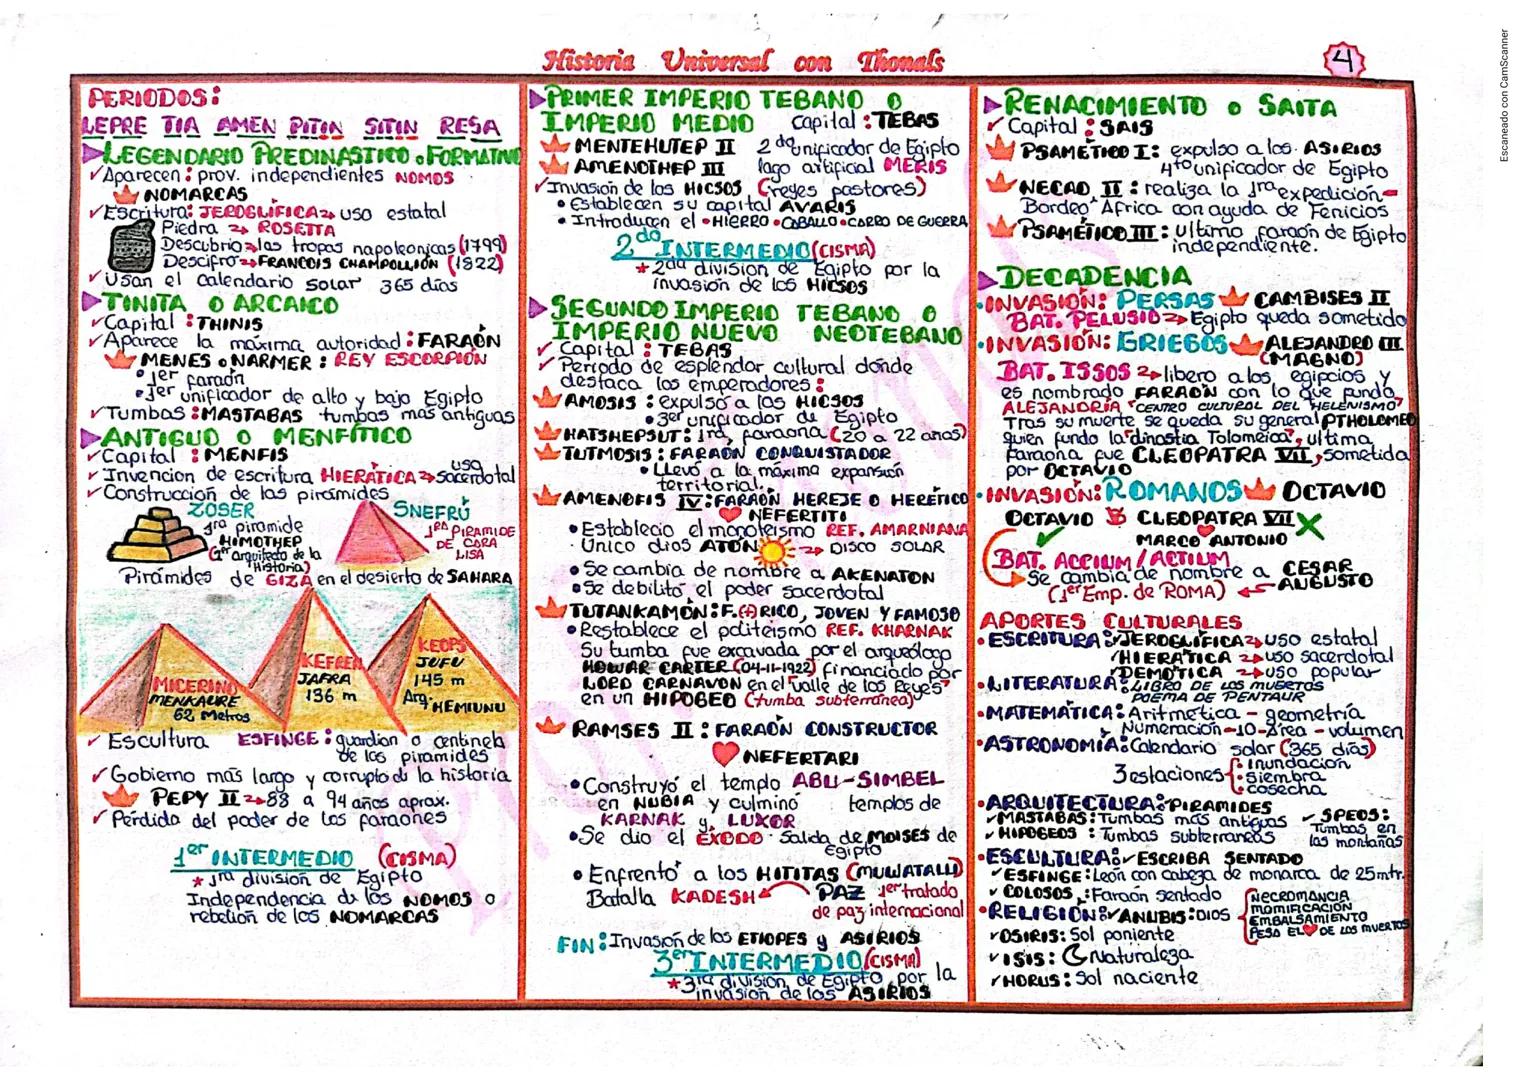 Historia Universal con Thonals
4
Escaneado con CamScanner
PERIODOS:
LEPRE TIA AMEN PITIN SITIN RESA
LEGENDARIO PREDINASTICO o FORMATIVO
Aparecen: prov. independientes NOMOS
NOMARCAS
Escritura: JEROGLIFICA uso estatal
Piedra ROSETTA
Descubrio las tropas napoleonicas (1799)
Descifro FRANCOIS CHAMPOLLION (1822)
Usan el calendario solar 365 dias
TINITA O ARCAICO
Capital: THINIS
Aparece la máxima autoridad: FARAÓN
MENES o NARMER: REY ESCORPIÓN
1er faraón
1er unificador de alto y bajo Egipto
Tumbas: MASTABAS tumbas mas antiguas
ANTIGUO O MENFÍTICO
Capital: MENFIS
Invencion de escritura HIERÁTICA uso sacerdotal
Construccion de las pirámides
ZOSER
1ra piramide
HIMOTHEP
(1er arquitecto de la Historia)
SNEFRÚ
1RA PIRAMIDE
DE CARA
LISA
Pirámides de GIZA en el desierto de SAHARA
MICERINO
MENKAURE
62 Metros
KEFREN
JAFRA
136 m
KEOPS
JUFU
145 m
Arq. HEMIUNU
Escultura ESFINGE: guardian o centinela
de las piramides
Gobierno más largo y corrupto de la historia
PEPY II 88 a 94 años aprox.
Perdida del poder de los faraones
1er INTERMEDIO (CISMA)
1ra división de Egipto
Independencia de los NOMOS o
rebelion de los NOMARCAS
PRIMER IMPERIO TEBANO O
IMPERIO MEDIO Capital: TEBAS
MENTEHUTEP II 2do unificador de Egipto
AMENOTHEP III lago artificial MERIS
Invasión de los HICSOS (reyes pastores)
Establecen su capital AVARIS
Introducen el HIERRO CABALLO CARRO DE GUERRA
2do INTERMEDIO (CISMA)
2da division de Egipto por la
invasión de los HICSOS
SEGUNDO IMPERIO TEBANO O
IMPERIO NUEVO NEOTEBANO
Capital: TEBAS
Periodo de esplendor cultural donde
destaca los emperadores:
AMOSIS: expulsó a los HICSOS
3er unificador de Egipto
HATSHEPSUT: 1ra faraona (20 a 22 años)
TUTMOSIS: FARAÓN CONQUISTADOR
Llevó a la máxima expansión
territorial.
AMENOFIS IV: FARAÓN HEREJE O HERÉTICO
NEFERTITI
Establecio el monoteismo REF. AMARNIANA
Unico dios ATÓN DISCO SOLAR
Se cambia de nombre a AKENATON
Se debilitó el poder sacerdotal
TUTANKAMÓN: F.(+) RICO, JOVEN Y FAMOSO
Restablece el politeismo REF. KHARNAK
Su tumba fue excavada por el arqueólogo
HOWAR CARTER (04-11-1922) financiado por
LORD CARNAVON en el "valle de los Reyes"
en un HIPOGEO (tumba subterránea)
RAMSES II: FARAÓN CONSTRUCTOR
NEFERTARI
Construyó el templo ABU-SIMBEL
en NUBIA y culminó templos de
KARNAK y LUXOR
Se dio el ÉXODO: Salida de MOISES de
Egipto
Enfrentó a los HITITAS (MUWATALLI)
Batalla KADESH PAZ 1er tratado
de paz internacional
FIN: Invasión de los ETIOPES y ASIRIOS
3er INTERMEDIO (CISMA)
3ra división de Egipto por la
invasión de los ASIRIOS
RENACIMIENTO o SAITA
Capital: SAIS
PSAMÉTICO I: expulso a los ASIRIOS
4to unificador de Egipto
NECAO II: realiza la 1ra expedición
Bordeo Africa con ayuda de Fenicios
PSAMÉTICO III: ultimo faraón de Egipto
independiente.
DECADENCIA
INVASIÓN: PERSAS CAMBISES II
BAT. PELUSIO Egipto queda sometido
INVASIÓN: GRIEGOS ALEJANDRO III
(MAGNO)
BAT. ISSOS libero a los egipcios y
es nombrado FARAÓN con lo que fundo
ALEJANDRÍA "CENTRO CULTURAL DEL HELENISMO"
Tras su muerte se queda su general PTHOLOMEO
quien fundo la "dinastia Tolomeica", ultima
faraona fue CLEOPATRA VII, sometida
por OCTAVIO
INVASIÓN: ROMANOS OCTAVIO
OCTAVIO VS CLEOPATRA VII
MARCO ANTONIO
BAT. ACCIUM/ACTIUM
Se cambia de nombre a CESAR
AUGUSTO
(1er Emp. de ROMA)
APORTES CULTURALES
ESCRITURA: JEROGLÍFICA uso estatal
HIERÁTICA uso sacerdotal
DEMÓTICA uso popular
LITERATURA: LIBRO DE LOS MUERTOS
POEMA DE PENTAUR
MATEMÁTICA: Aritmética - geometría
Numeración-10-Área-volumen
ASTRONOMÍA: Calendario solar (365 dias)
3 estaciones inundación
siembra
cosecha
ARQUITECTURA: PIRAMIDES
MASTABAS: Tumbas más antiguas
HIPOGEOS: Tumbas subterraneas
SPEOS:
Tumbas en
las montañas
ESCULTURA: ESCRIBA SENTADO
ESFINGE: León con cabeza de monarca de 25mtr.
COLOSOS: Faraón sentado
RELIGIÓN: ANUBIS: DIOS
NECROMANCIA
MOMIFICACIÓN
EMBALSAMIENTO
PESA EL DE LOS MUERTOS
OSIRIS: Sol poniente
ISIS: Naturaleza
HORUS: Sol naciente